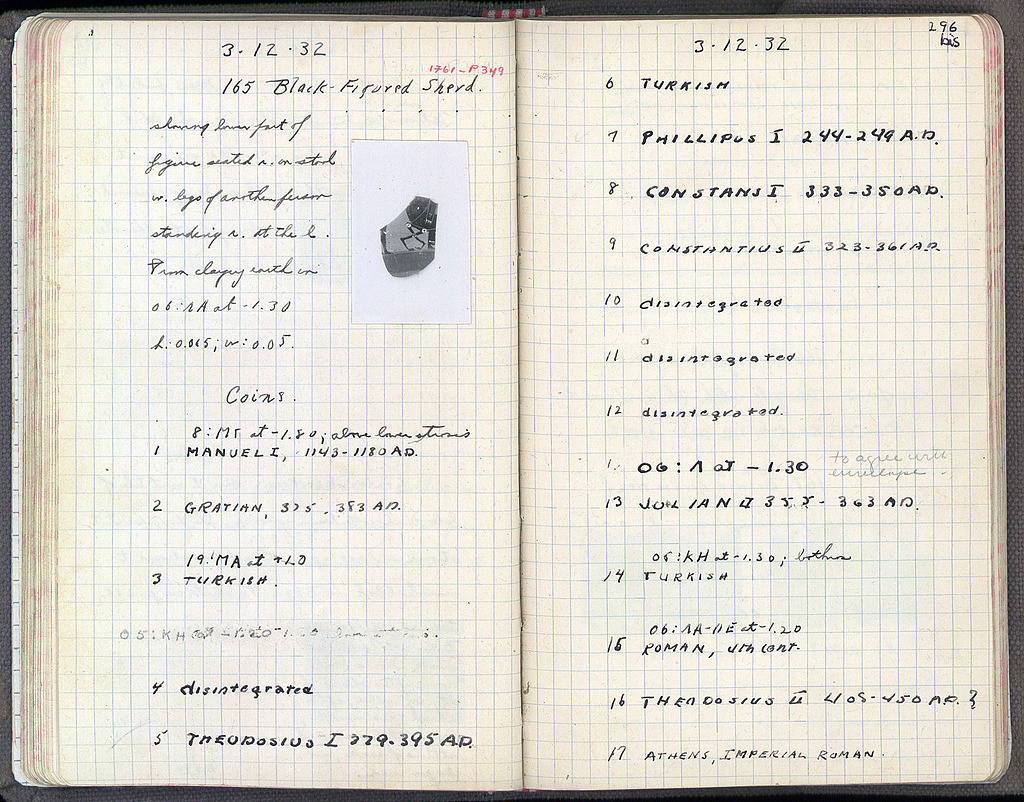 3·12·32
1761-P349
165 Black-Figured Sherd.
showing lower part of
figure seated r. on stool
w. legs of another person
standing r. at the l.
From clayey earth in
06:ΛΑ at -1.30
h: 0.065; w: 0.05.
Coins.
8:ΜΓ at -1.80; above lower strosis
1 MANUEL I, 1143-1180 AD.
2 GRATIAN, 375-383 AD.
19:ΜΑ at +1.0
3 TURKISH.
05:ΚΗ at -1.20
4 disintegrated
5 THEODOSIUS I 379-395 AD.
296
bis
3·12·32
6 TURKISH
7 PHILLIPUS I 244-249 A.D.
8 CONSTANS I 333-350 AD.
9 CONSTANTIUS II 323-361 AD.
10 disintegrated
11 disintegrated
12 disintegrated.
06:Λ at -1.30 to agree with
envelope.
13 JULIAN II 355-363 AD.
05:ΚΗ at -1.30; bothros
14 TURKISH
06:ΛΑ-ΛΕ at -1.20
15 ROMAN, 4th cent.
16 THEODOSIUS II 408-450 AD. }
17 ATHENS, IMPERIAL ROMAN.